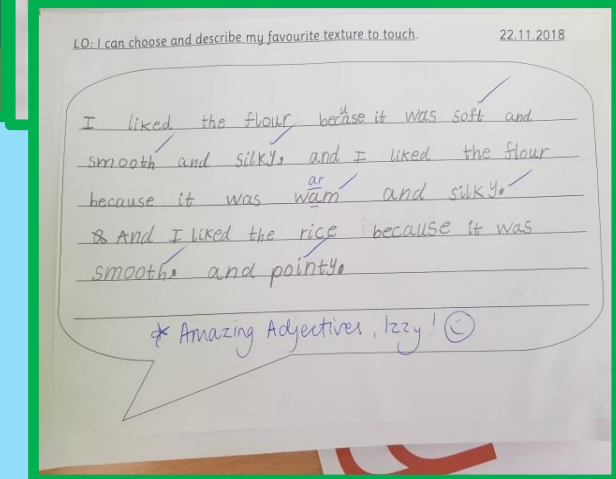 LO: I can choose and describe my favourite texture to touch. 22.11.2018
I liked the flour becuase it was soft and
smooth and silky. and I liked the flour
ar
because it was wam and silky.
And I liked the rice because it was
smooth. and pointy.
* Amazing Adjectives, Izzy!